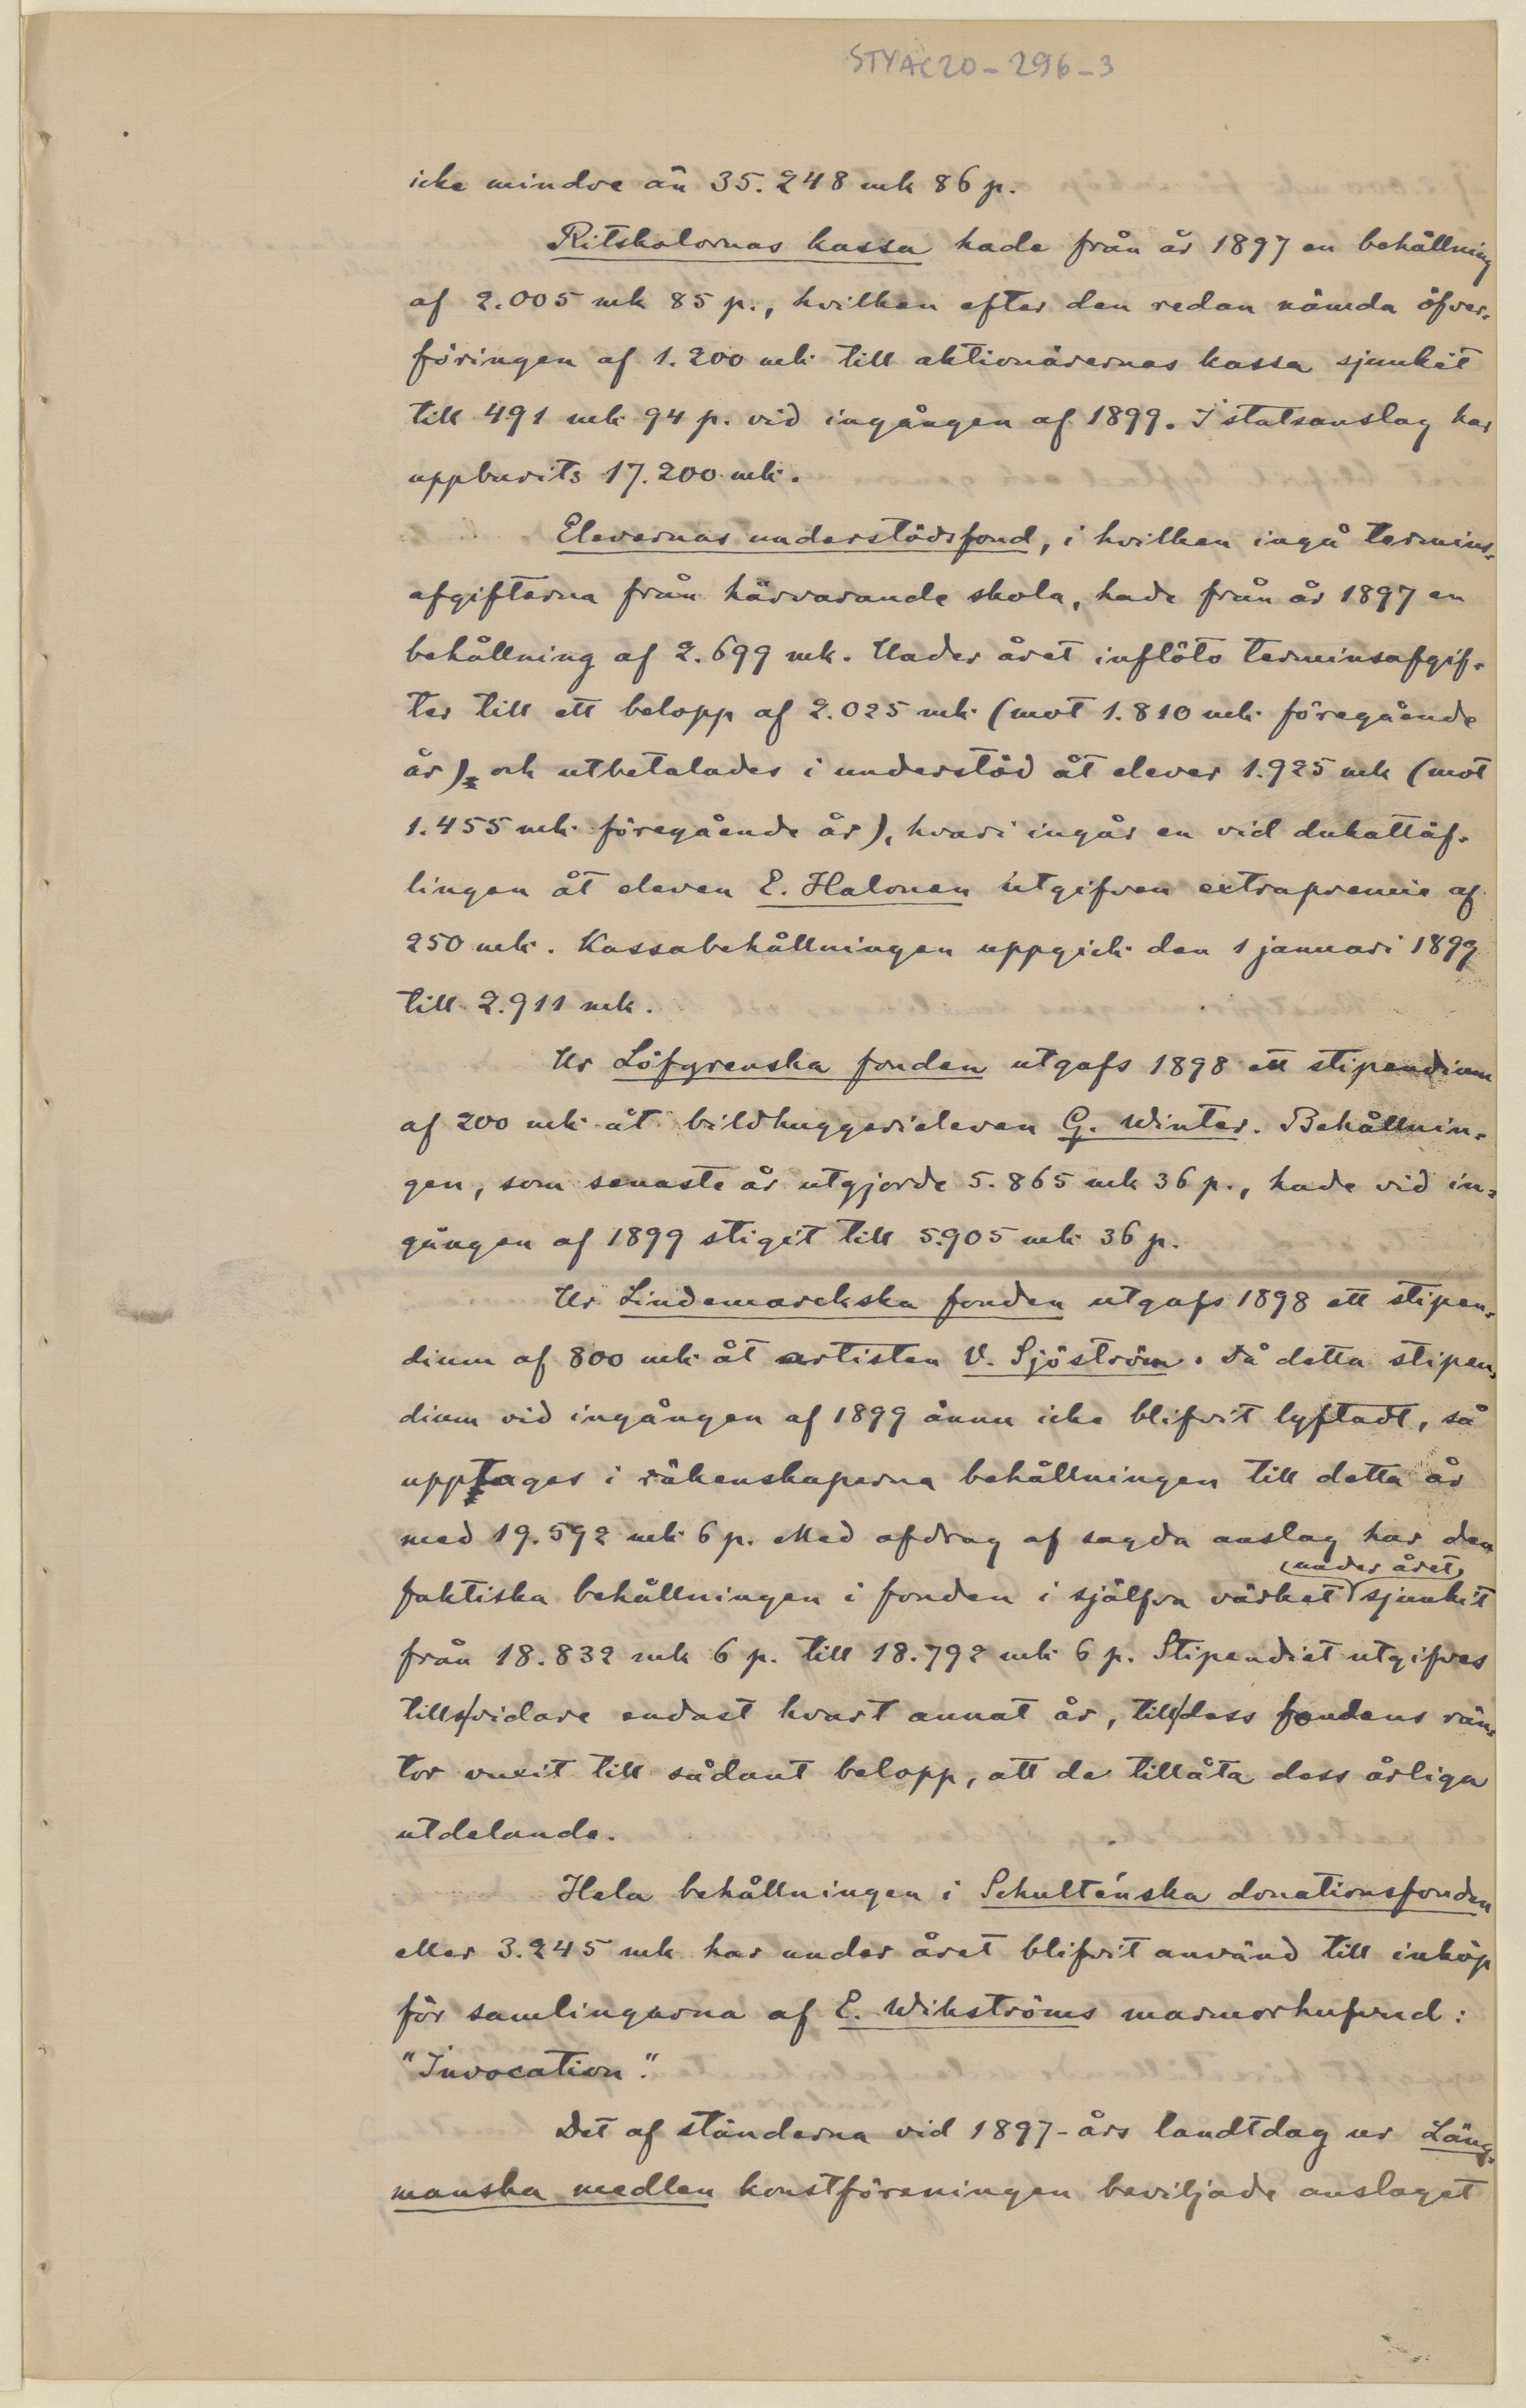 STYAC20-296-3
icke mindre än 35.248 mk 86 p.
Ritskolornas kassa hade från år 1897 en behållning
af 2.005 mk 85 p., hvilken efter den redan nämda öfver-
föringen af 1.200 mk till aktionärernas kassa sjunkit
till 491 mk 94 p. vid ingången af 1899. I statsanslag har
uppburits 17.200 mk.
Elevernas understödsfond, i hvilken ingå termins-
afgifterna från härvarande skola, hade från år 1897 en
behållning af 2.699 mk. Under året inflöto terminsafgif-
ter till ett belopp af 2.025 mk (mot 1.810 mk föregående
år) och utbetalades i understöd åt elever 1.925 mk (mot
1.455 mk föregående år), hvari ingår en vid dukattäf-
lingen åt eleven E. Halonen utgifven extrapremie af
250 mk. Kassabehållningen uppgick den 1 januari 1899
till 2.911 mk.
Ur Löfgrenska fonden utgafs 1898 ett stipendium
af 200 mk åt bildhuggerieleven G. Winter. Behållnin-
gen, som senaste år utgjorde 5.865 mk 36 p., hade vid in-
gången af 1899 stigit till 5.905 mk 36 p.
Ur Lindemarckska fonden utgafs 1898 ett stipen-
dium af 800 mk åt artisten V. Sjöström. Då detta stipen-
dium vid ingången af 1899 ännu icke blifvit lyftadt, så
upptages i räkenskaperna behållningen till detta år
med 19.592 mk 6 p. Med afdrag af sagda anslag har den
faktiska behållningen i fonden i själfva värket under året sjunkit
från 18.832 mk 6 p. till 18.792 mk 6 p. Stipendiet utgifves
tills/vidare endast hvart annat år, till/dess fondens rän-
tor vuxit till sådant belopp, att de tillåta dess årliga
utdelande.
Hela behållningen i Schulténska donationsfonden
eller 3.245 mk har under året blifvit använd till inköp
för samlingarna af E. Wikströms marmorhufvud:
"Invocation".
Det af ständerna vid 1897-års landtdag ur Läng-
manska medlen konstföreningen beviljade anslaget